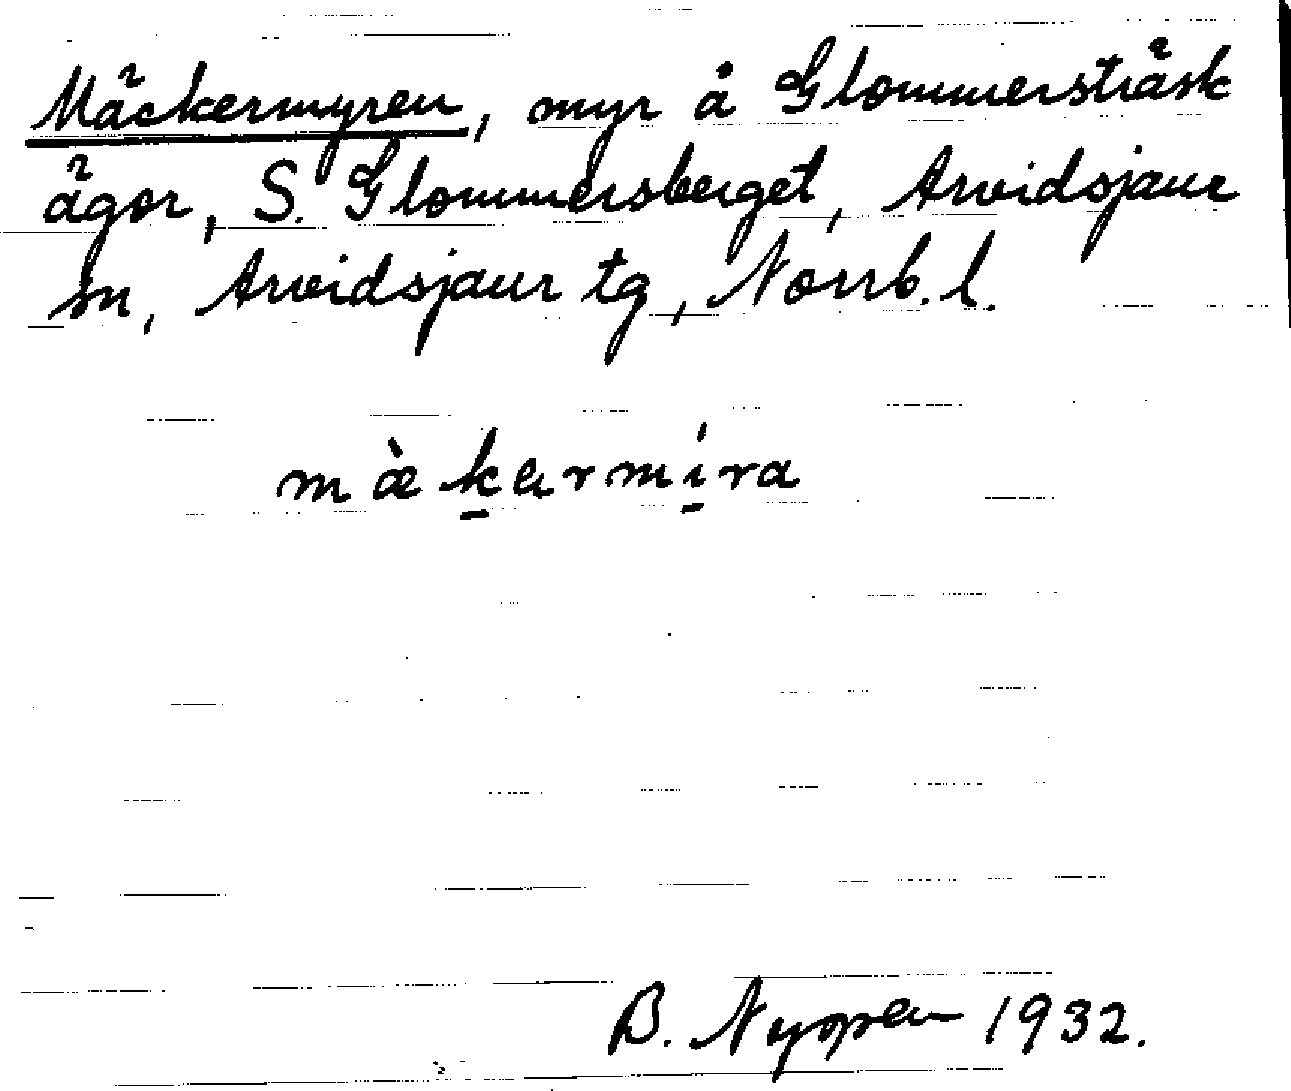 Mäckermyren, myr å Glommersträsk
ägor, S. Glommersberget, Arvidsjaur
sn, Arvidsjaur tg, Norrb. l.
mæ̀k̠ɐrmí̠ra
B. 1932.